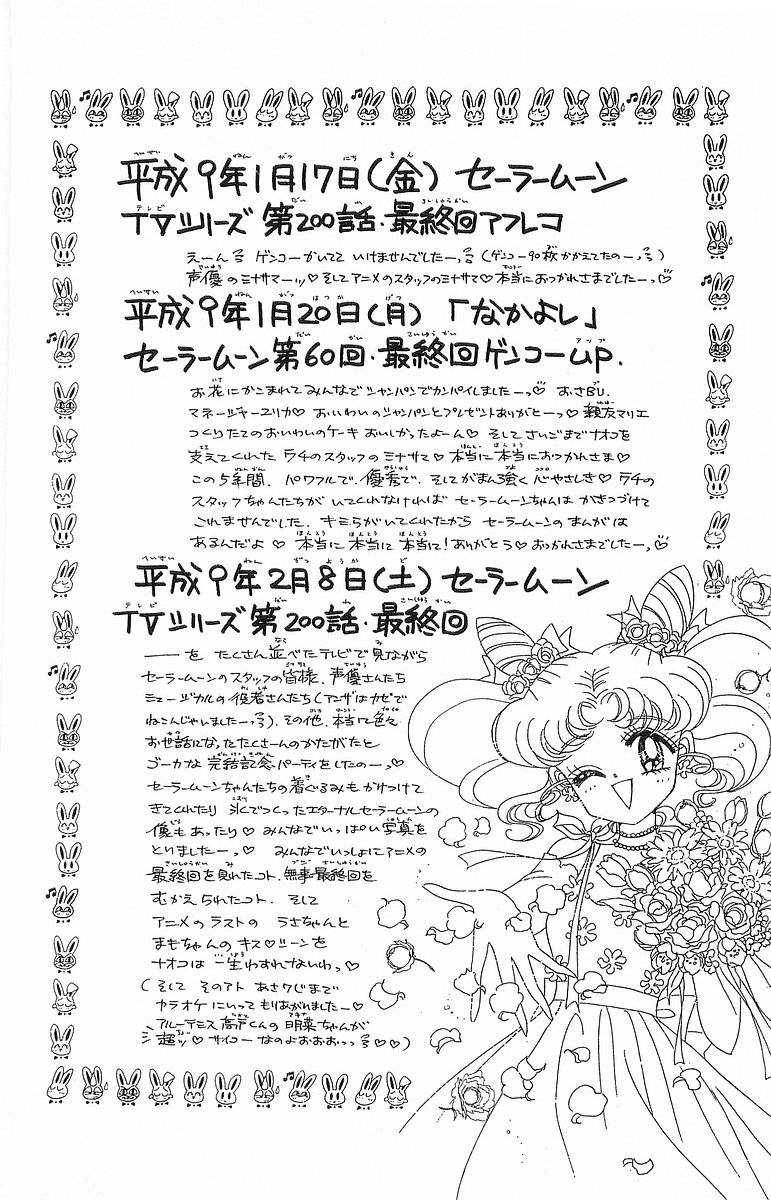 平成9年1月17日(金) セーラームーン
TVシリーズ 第200話・最終回アフレコ
えーんる ゲンコーかいてて いけませんでしたーっる (ゲンコー90枚かかえてたのーっる)
声優のミナサマーッ♡ そしてアニメのスタッフのミナサマ♡ 本当におつかれさまでしたーっ♡
平成9年1月20日(月) 「なかよし」
セーラームーン第60回・最終回ゲンコーup.
お花にかこまれてみんなでシャンパンでカンパイしましたーっ♡ おさBU.
マネージャーユリカ♡ おいわいのシャンパンとプレゼントありがとーっ♡ 親友マリエ
つくりたてのおいわいのケーキ おいしかったよーん♡ そして さいごまでナオコを
支えてくれた ウチのスタッフのミナサマ♡ 本当に本当におつかれさま♡
この5年間、パワフルで、優秀で、そしてがまん強く 心やさしき♡ ウチの
スタッフちゃんたちが いてくれなければ セーラームーンちゃんは かきつづけて
これませんでした. キミらがいてくれたから セーラームーンのまんがは
あるんだよ♡ 本当に 本当に 本当に! ありがとう♡ おつかれさまでしたーっ♡
平成9年2月8日(土) セーラームーン
TVシリーズ 第200話・最終回
——を たくさん並べたテレビで見ながら
セーラームーンのスタッフの皆様、声優さんたち
ミュージカルの役者さんたち(アンザはカゼで
ねこんじゃいましたーっる)、その他、本当に色々
お世話になったたくさんのかたがたと
ゴーカな 完結記念パーティをしたのーっ♡
セーラームーンちゃんたちの着ぐるみも かけつけて
きてくれたり 氷でつくったエターナルセーラームーンの
像もあったり♡ みんなでいっぱい写真を
とりましたーっ♡ みんなでいっしょにアニメの
最終回を見れたコト、無事最終回を
むかえられたコト、そして
アニメのラストの うさちゃんと
まもちゃんのキス♡シーンを
ナオコは一生わすれないわっ♡
(そして そのアト あさ7じまで
カラオケにいって もりあがれましたー♡
アルーテミス高戸くんの明菜ちゃんが
超ッ♡ サイコーなのよおおおっっる♡♡)